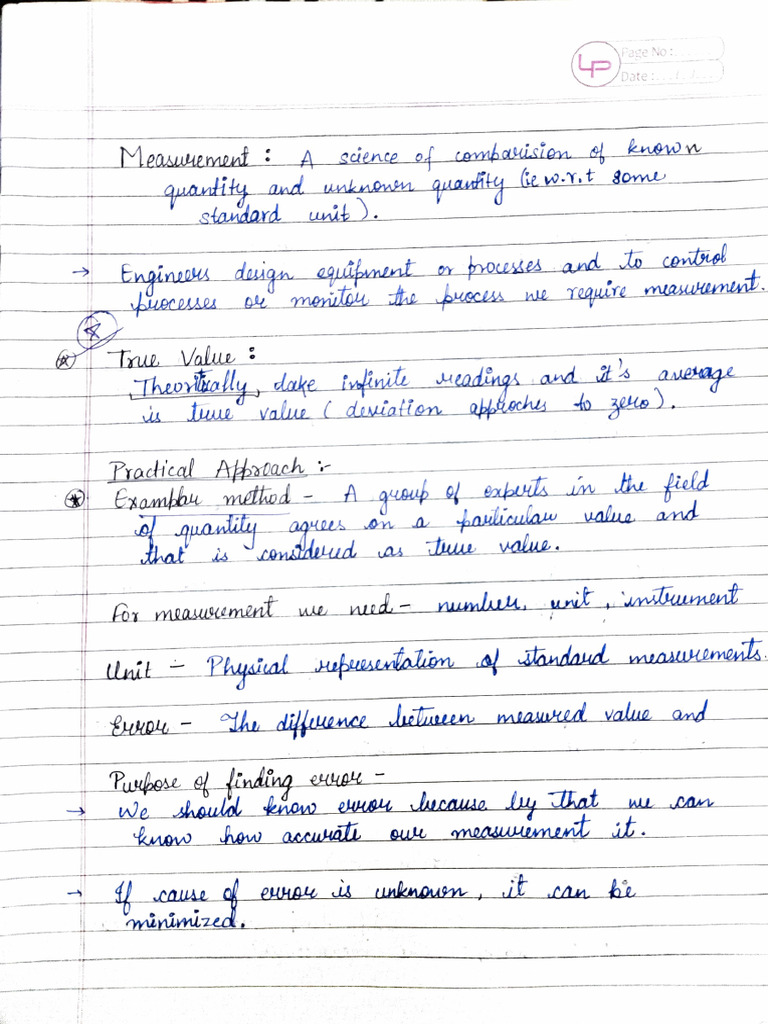 LP
Page No :
Date :
Measurement : A science of comparision of known
quantity and unknown quantity (ie w.r.t some
standard unit).
→ Engineers design equipment or processes and to control
processes or monitor the process we require measurement.
True Value :
Theoritically, take infinite readings and it's average
is true value (deviation approches to zero).
Practical Approach :-
Examplar method - A group of experts in the field
of quantity agrees on a particular value and
that is considered as true value.
For measurement we need - number, unit, instrument
Unit - Physical representation of standard measurements.
Error - The difference between measured value and
Purpose of finding error -
→ We should know error because by that we can
know how accurate our measurement it.
→ If cause of error is unknown, it can be
minimized.